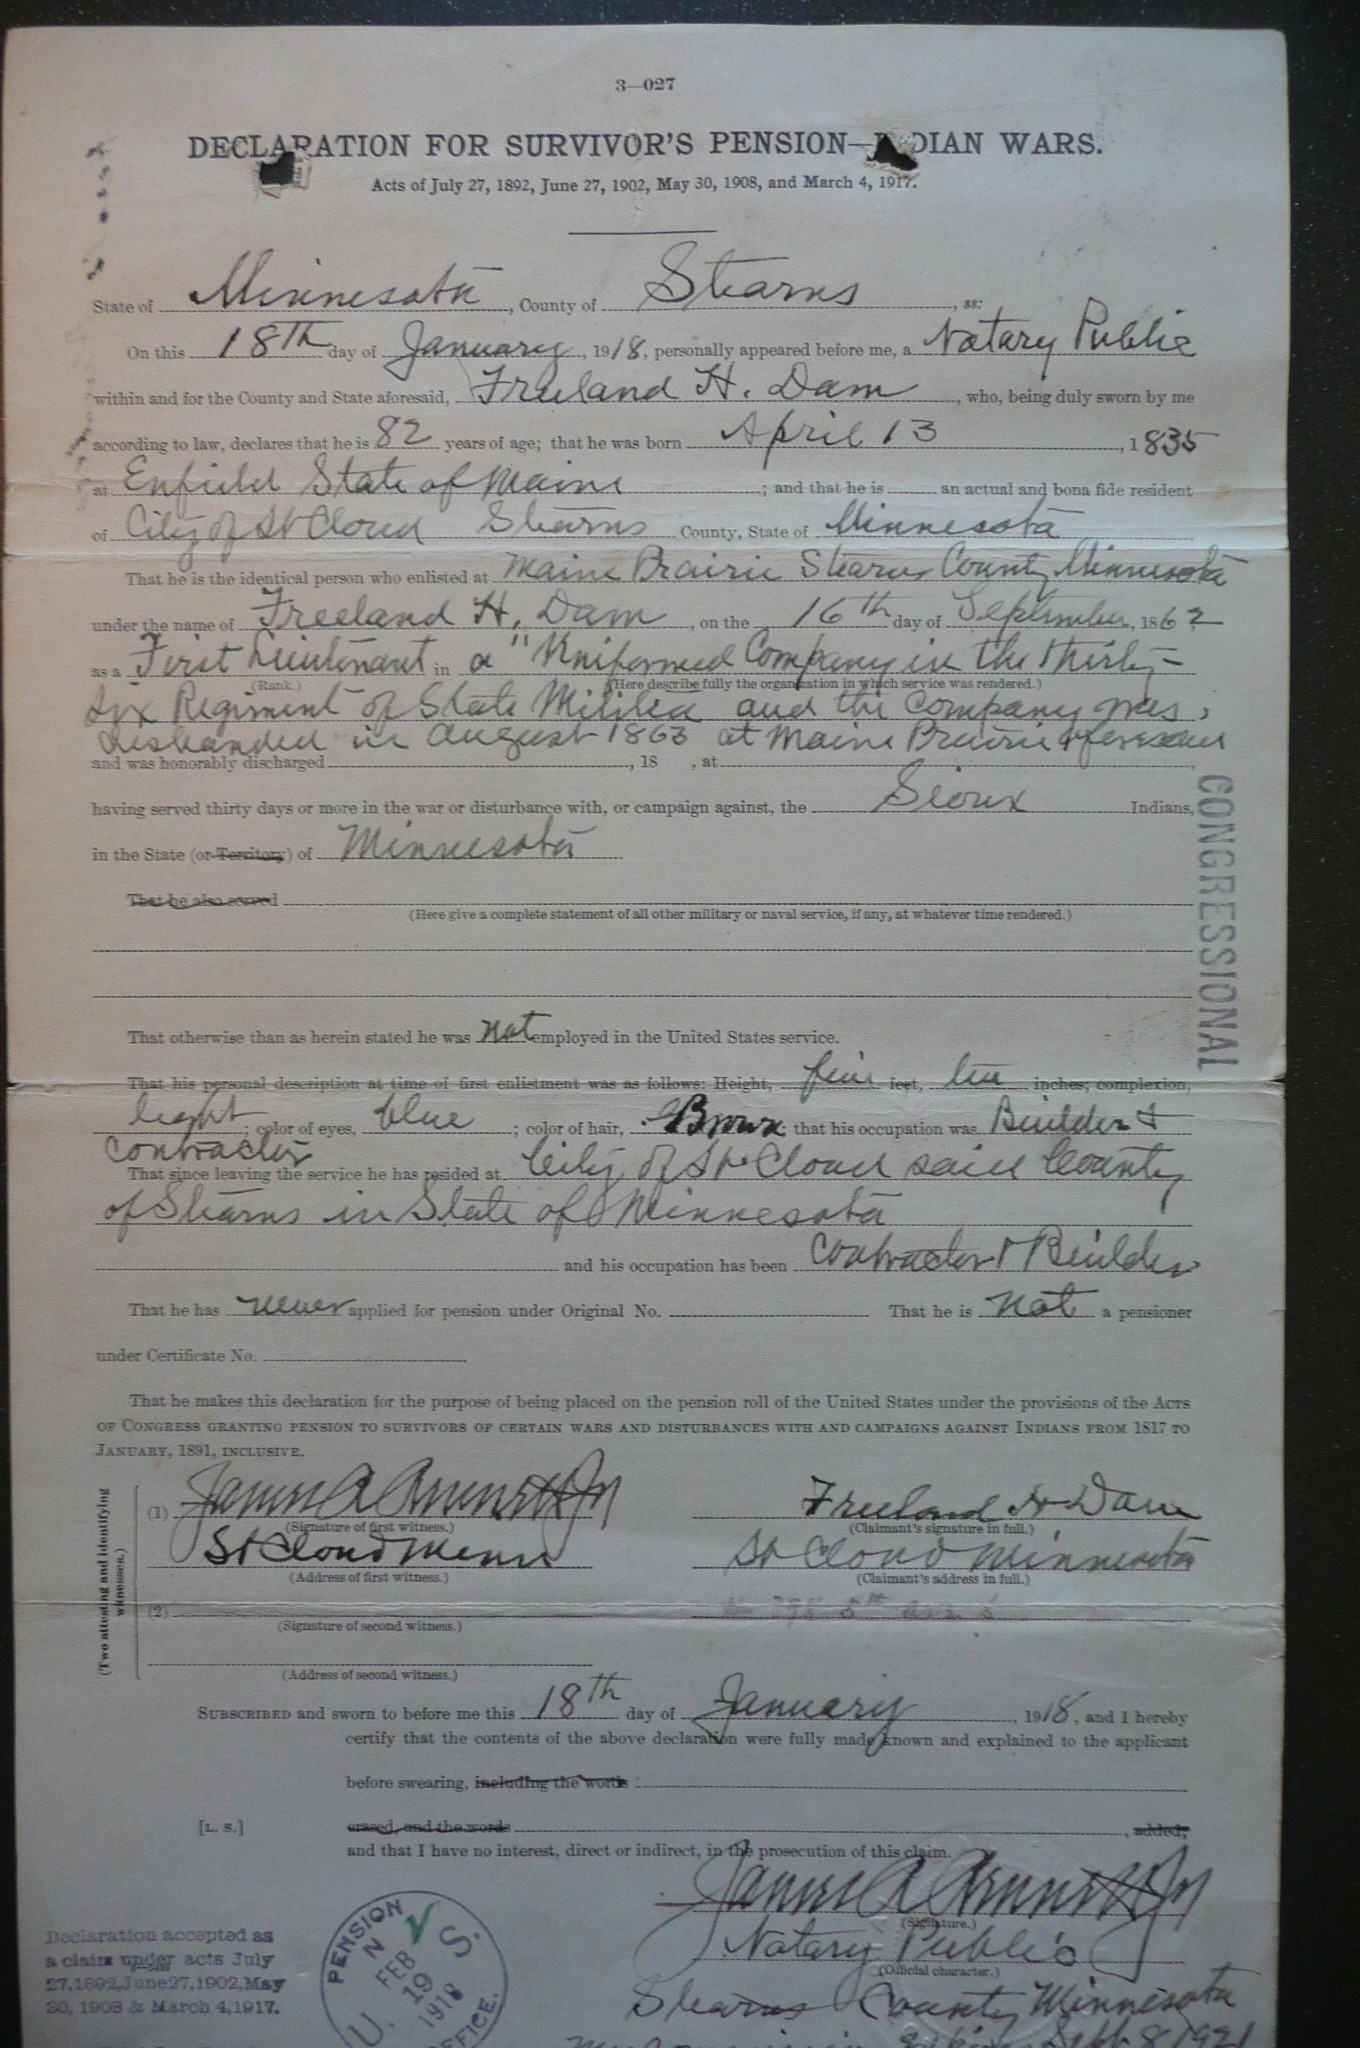 3—027
DECLARATION FOR SURVIVOR'S PENSION—INDIAN WARS.
Acts of July 27, 1892, June 27, 1902, May 30, 1908, and March 4, 1917.
State of Minnesota, County of Stearns, ss:
On this 18th day of January, 1918, personally appeared before me, a Notary Public
within and for the County and State aforesaid, Freeland H. Dam, who, being duly sworn by me
according to law, declares that he is 82 years of age; that he was born April 13, 1835
at Enfield State of Maine; and that he is an actual and bona fide resident
of City of St Cloud Stearns County, State of Minnesota
That he is the identical person who enlisted at Maine Prairie Stearns County Minnesota
under the name of Freeland H. Dam, on the 16th day of September, 1862
as a First Lieutenant in a "Uniformed Company in the thirty-
(Rank.) (Here describe fully the organization in which service was rendered.)
six Regiment of State Militia and the company was
disbanded in August 1863 at Maine Prairie aforesaid
and was honorably discharged, 18 , at
having served thirty days or more in the war or disturbance with, or campaign against, the Sioux Indians,
in the State (or Territory) of Minnesota
That he also served
(Here give a complete statement of all other military or naval service, if any, at whatever time rendered.)
That otherwise than as herein stated he was not employed in the United States service.
That his personal description at time of first enlistment was as follows: Height, five feet, ten inches; complexion,
light; color of eyes, blue; color of hair, Brown; that his occupation was Builder &
Contractor
That since leaving the service he has resided at City of St Cloud said County
of Stearns in State of Minnesota
and his occupation has been Contractor & Builder
That he has never applied for pension under Original No. That he is not a pensioner
under Certificate No.
That he makes this declaration for the purpose of being placed on the pension roll of the United States under the provisions of the Acts
of Congress granting pension to survivors of certain wars and disturbances with and campaigns against Indians from 1817 to
January, 1891, inclusive.
CONGRESSIONAL
(Two attesting and identifying witnesses.)
(1) James A Freeland H Dam
(Signature of first witness.) (Claimant's signature in full.)
St Cloud Minn St Cloud Minnesota
(Address of first witness.) (Claimant's address in full.)
(2) 5th Ave S
(Signature of second witness.)
(Address of second witness.)
Subscribed and sworn to before me this 18th day of January, 1918, and I hereby
certify that the contents of the above declaration were fully made known and explained to the applicant
before swearing, including the words
[L. S.] erased, and the words , added;
and that I have no interest, direct or indirect, in the prosecution of this claim.
James A
(Signature.)
Notary Public
(Official character.)
Stearns County Minnesota
Sept 8 1921
Declaration accepted as
a claim under acts July
27,1892,June27,1902,May
30, 1908 & March 4,1917.
U. S. PENSION OFFICE.
N
FEB
19
1918